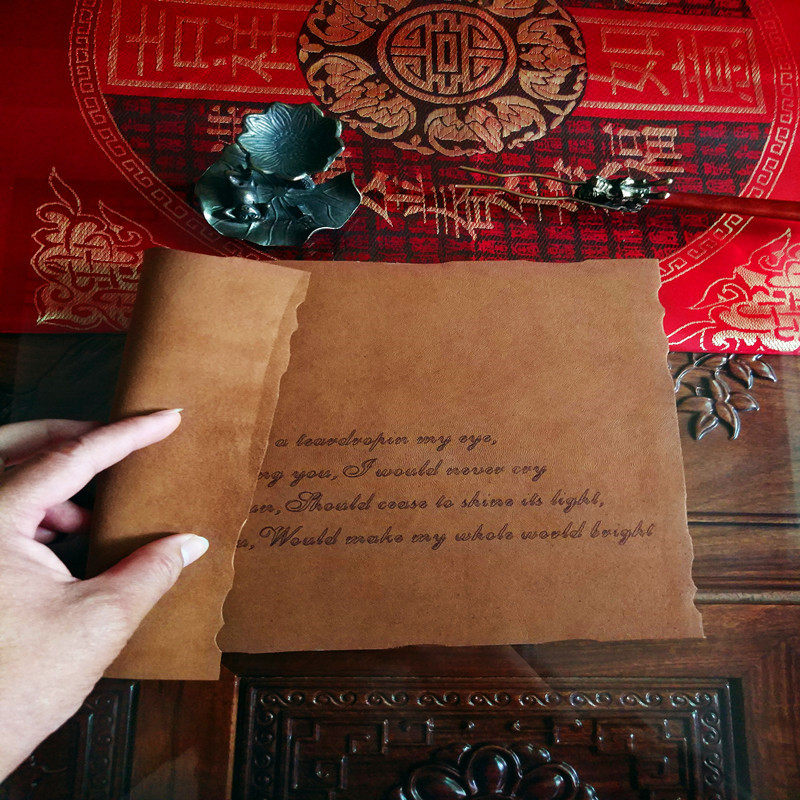 吉祥 如意
福
a teardropin my eye,
ng you, I would never cry
un, Should cease to shine its light,
u, Would make my whole world bright